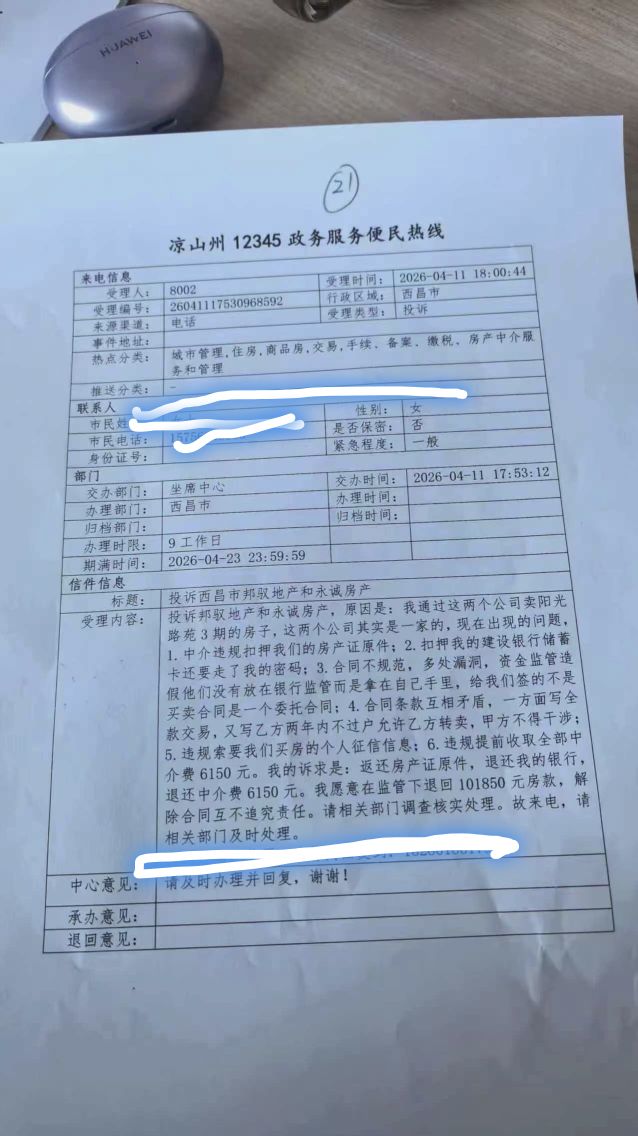 HUAWEI
21
凉山州 12345 政务服务便民热线
来电信息
受理人： 8002 受理时间： 2026-04-11 18:00:44
受理编号： 26041117530968592 行政区域： 西昌市
来源渠道： 电话 受理类型： 投诉
事件地址：
热点分类： 城市管理,住房,商品房,交易,手续、备案、缴税、房产中介服
务和管理
推送分类： -
联系人
市民姓 性别： 女
市民电话： 是否保密： 否
身份证号： 紧急程度： 一般
部门
交办部门： 坐席中心 交办时间： 2026-04-11 17:53:12
办理部门： 西昌市 办理时间：
归档部门： 归档时间：
办理时限： 9 工作日
期满时间： 2026-04-23 23:59:59
信件信息
标题： 投诉西昌市邦驭地产和永诚房产
受理内容： 投诉邦驭地产和永诚房产，原因是：我通过这两个公司卖阳光
路苑 3 期的房子，这两个公司其实是一家的，现在出现的问题，
1. 中介违规扣押我们的房产证原件；2. 扣押我的建设银行储蓄
卡还要走了我的密码；3. 合同不规范，多处漏洞，资金监管造
假他们没有放在银行监管而是拿在自己手里，给我们签的不是
买卖合同是一个委托合同；4. 合同条款互相矛盾，一方面写全
款交易，又写乙方两年内不过户允许乙方转卖，甲方不得干涉；
5. 违规索要我们买房的个人征信信息；6. 违规提前收取全部中
介费 6150 元。我的诉求是：返还房产证原件，退还我的银行，
退还中介费 6150 元。我愿意在监管下退回 101850 元房款，解
除合同互不追究责任。请相关部门调查核实处理。故来电，请
相关部门及时处理。
中心意见： 请及时办理并回复，谢谢！
承办意见：
退回意见：